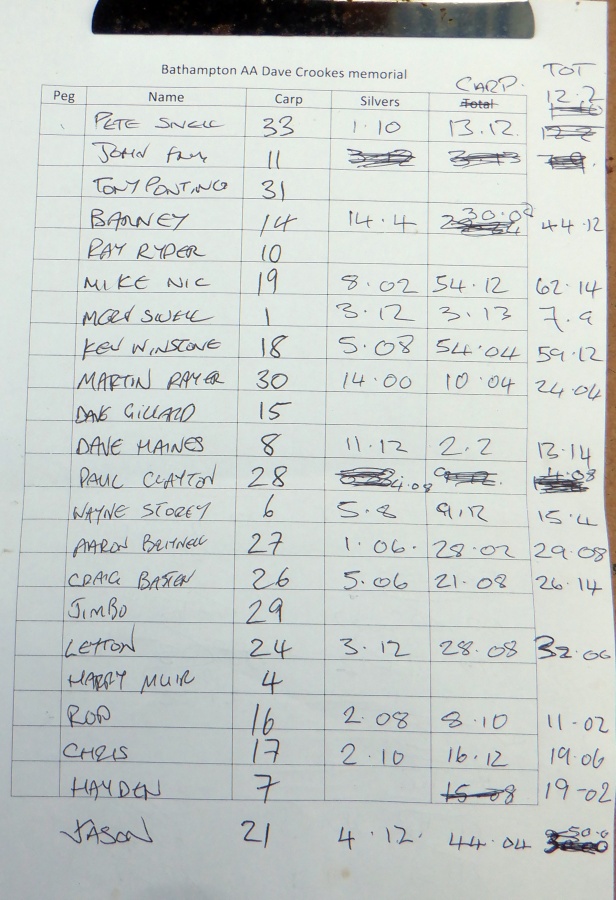 Bathampton AA Dave Crookes memorial
CARP. TOT
Peg Name Carp Silvers Total 12.2
PETE SNELL 33 1.10 13.12
JOHN 11
TONY PONTING 31
BARNEY 14 14.4 30.08 44.12
RAY RYDER 10
MIKE NIC 19 8.02 54.12 62.14
SNELL 1 3.12 3.13 7.9
KEV WINSTONE 18 5.08 54.04 59.12
MARTIN RAYER 30 14.00 10.04 24.04
DAVE GILLARD 15
DAVE HAINES 8 11.12 2.2 13.14
PAUL CLAYTON 28 4.08 4.08
WAYNE STOREY 6 5.8 9.12 15.4
AARON BRITNELL 27 1.06. 28.02 29.08
CRAIG BASTEN 26 5.06 21.08 26.14
JIMBO 29
LEYTON 24 3.12 28.08 32.06
HARRY MUIR 4
ROD 16 2.08 8.10 11-02
CHRIS 17 2.10 16.12 19.06
HAYDEN 7 15-08 19-02
JASON 21 4.12. 44.04